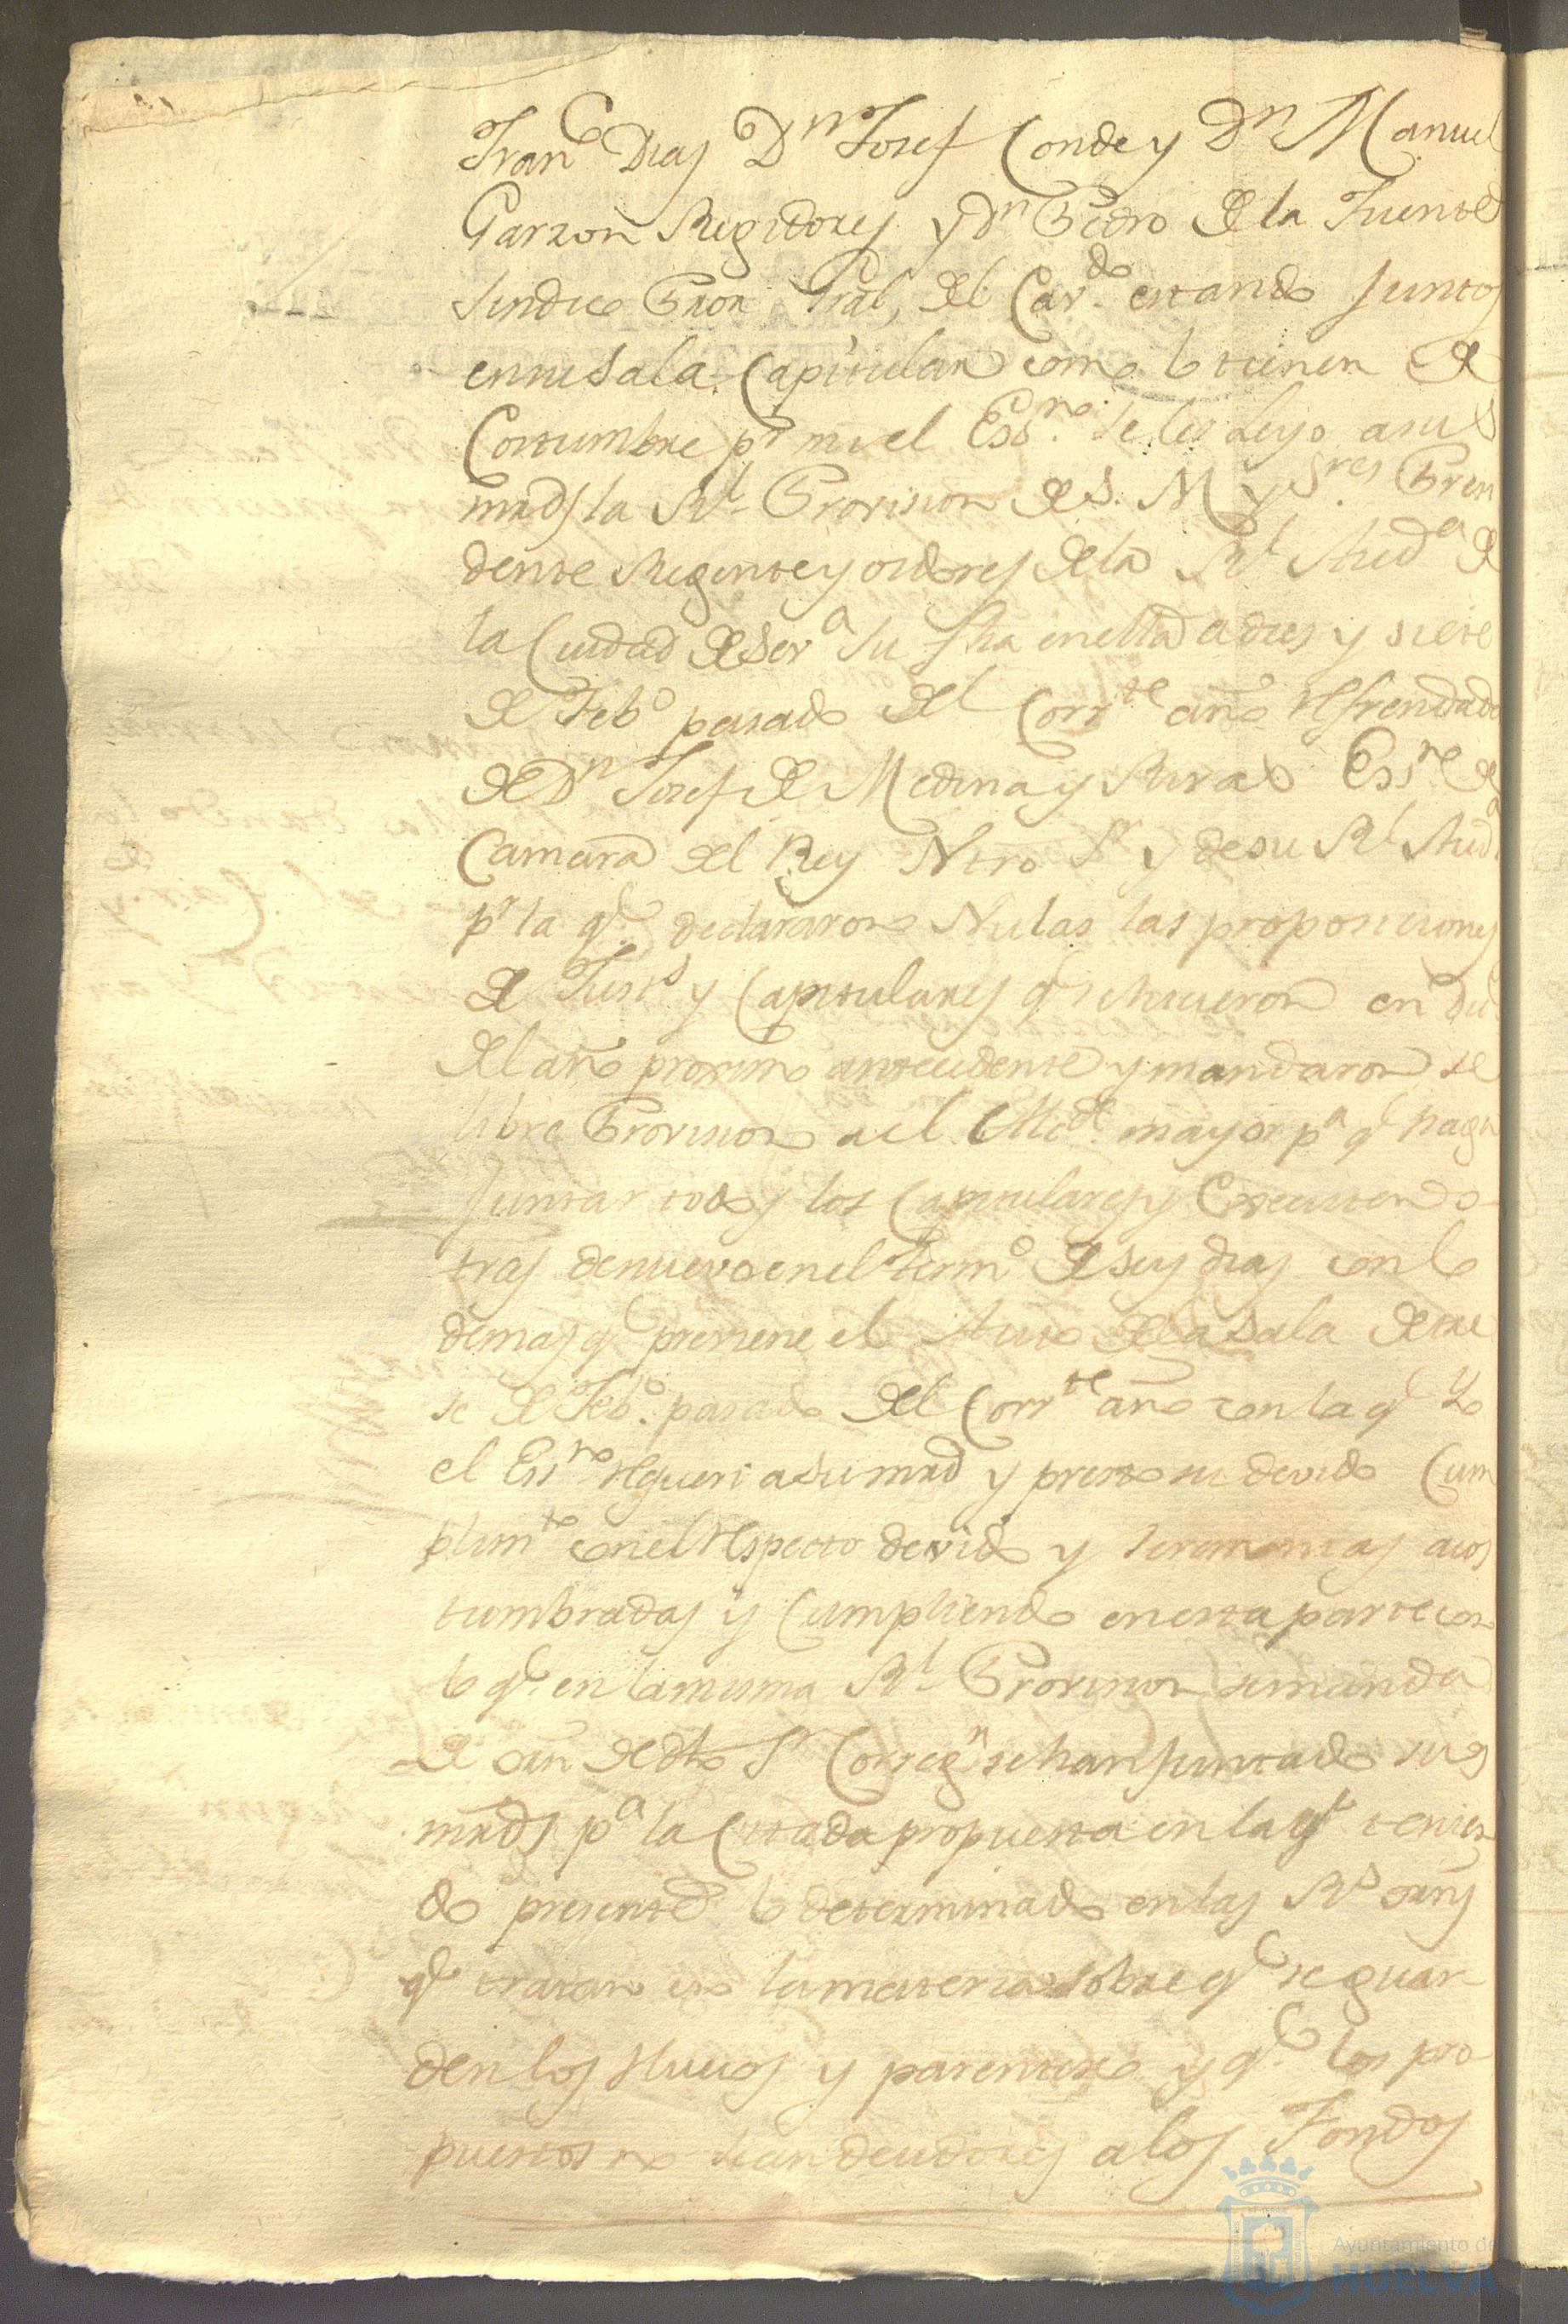 Franco Dias Dn Josef Conde y Dn Manuel
Garzon Regidores y Dn Pedro de la Fuente
Sindico Pror Gral, del Cavdo estando Juntos
en su Sala Capitular como lo tienen de
Costumbre pr mi el Essno se les Leyo a sus
mrds la Rl Provision de S. M y Sres Presi
dente Regente y oidores de la Rl Auda de
la Ciudad de Seva su fha en ella a dies y siete
de Febo pasado del Corrte año refrendada
de Dn Josef de Medina y Essno de
Camara del Rey Ntro Sr y de su Rl Auda
pr la qe declararon Nulas las proposiciones
de Justs y Capitulares qe se hicieron en
del año proximo antecedente y mandaron se
libre Provision a el Alcde mayor pa qe haga
Juntar todos los Capitulares y Executen o-
tras de nuevo en el termo de seis dias con lo
demas qe previene el Auto de la Sala de tre
se de Febo. pasado del Corrte año con la qe Yo
el Essno requeri a su mrd y presto su devido Cum
plimto con el respecto devido y seremonias acos
tumbradas y Cumpliendo en esta parte con
lo qe en la misma Rl Provision se manda
de orn de dho Sr Corregr se han Juntado sus
mrds pa la Citada propuesta en la qe tenien
do presente lo determinado en las Rs orns
qe tratan en la materia sobre qe se guar-
den los Huecos y parentesco y qe los pro-
puestos no sean deudores a los Fondos
Ayuntamiento de
HUELVA